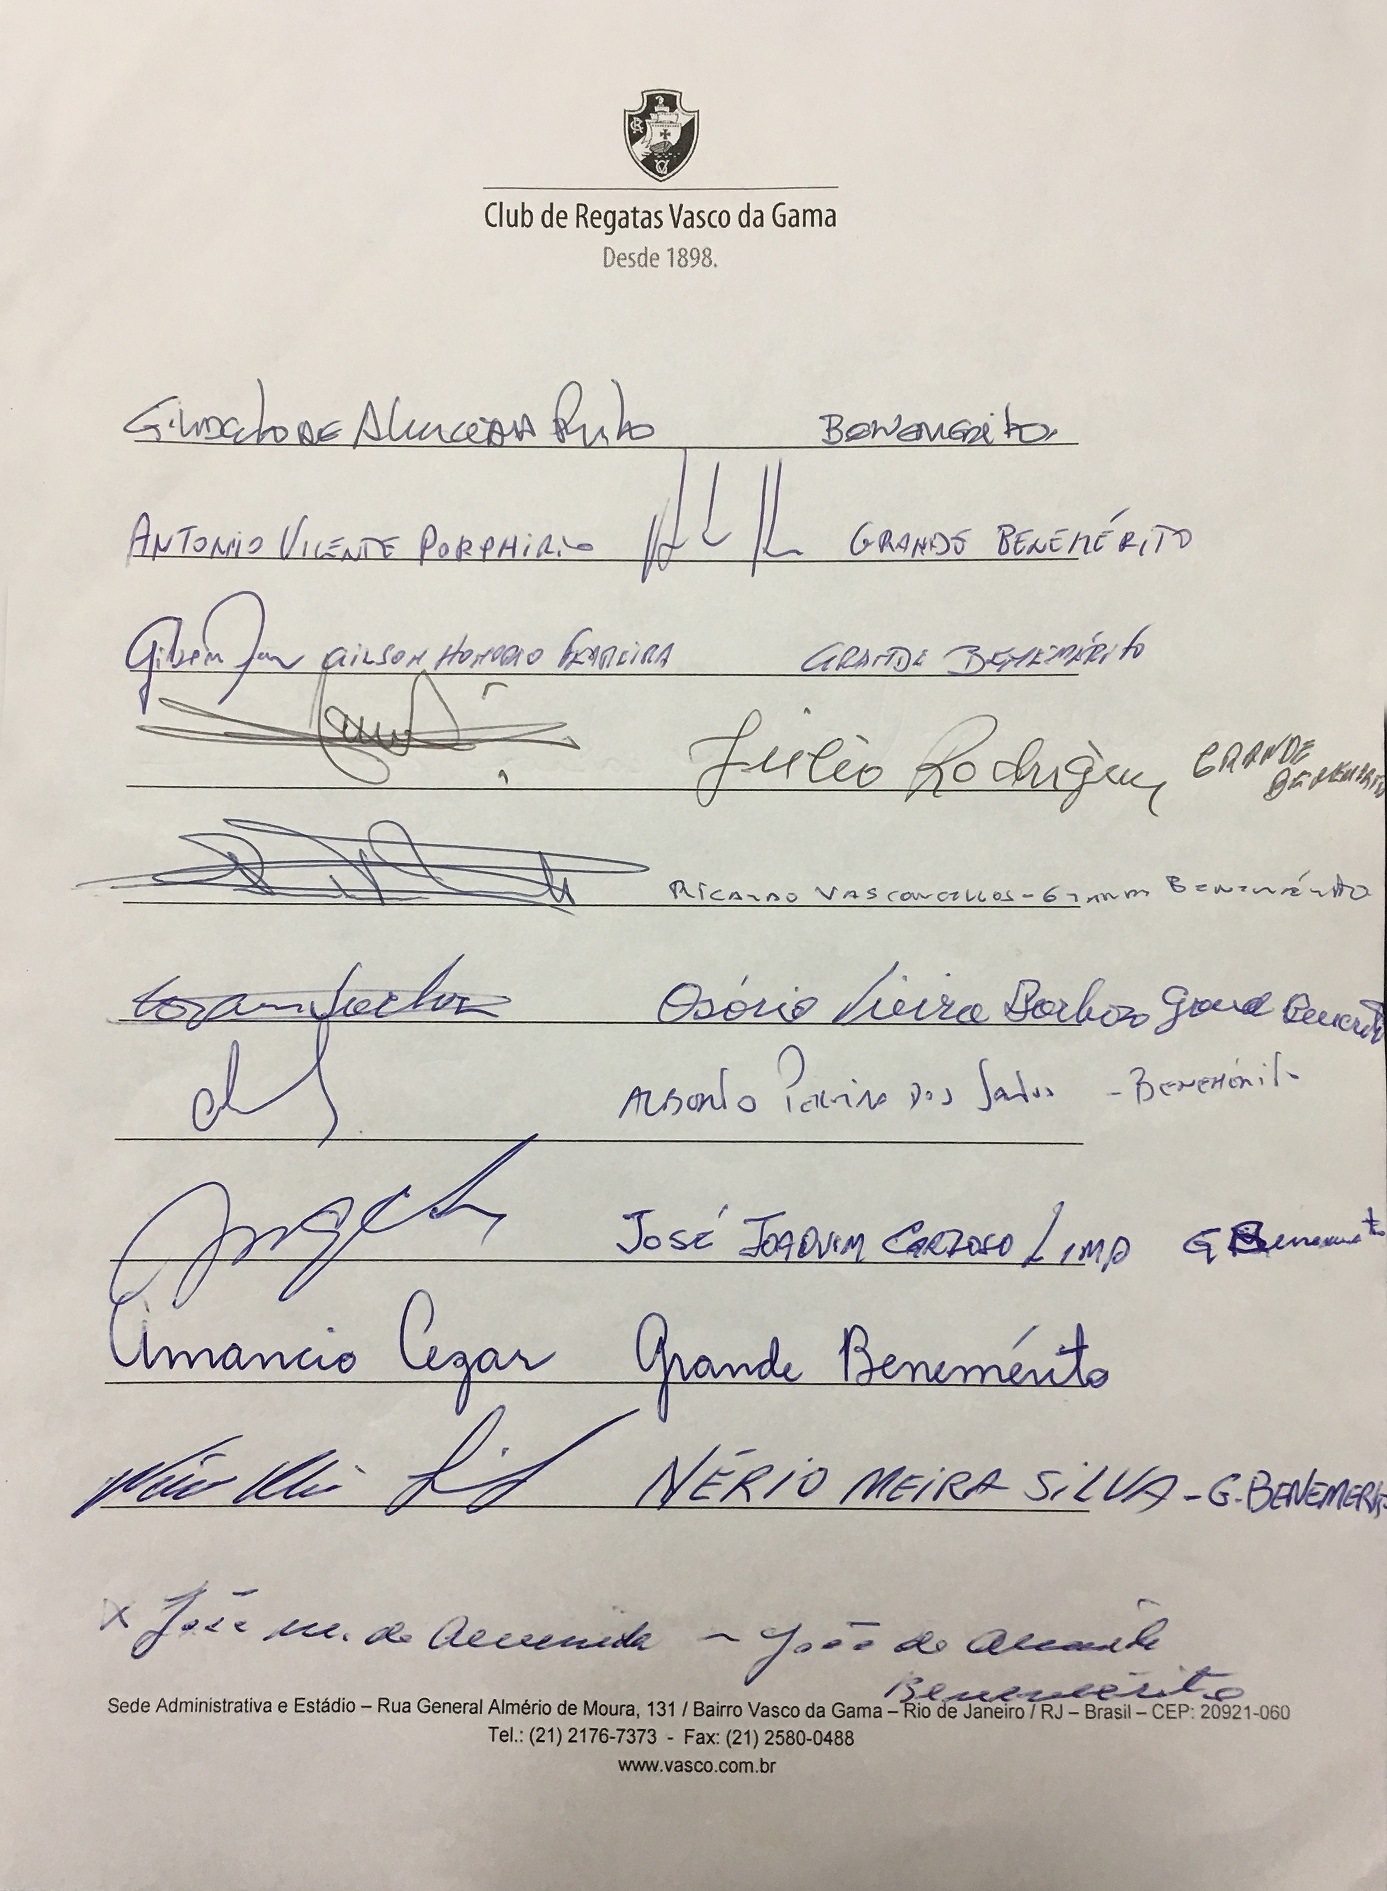 Club de Regatas Vasco da Gama
Desde 1898.
DE Almeida Benemerito
ANTONIO VICENTE PORPHIRIO GRANDE BENEMÉRITO
GILSON HONORIO FERREIRA GRANDE BENEMÉRITO
Júlio Rodrigues GRANDE BENEMÉRITO
RICARDO VASCONCELLOS - GRANDE BENEMÉRITO
Osório Vieira Barbosa Grande Benemérito
Alberto Pereira dos Santos - BENEMÉRITO
JOSÉ JOAQUIM CARDOSO LIMA G Benemerito
Amancio Cezar Grande Benemérito
NÉRIO MEIRA SILVA - G. BENEMERIT
X José m. de Almeida - João de Almeida
Benemérito
Sede Administrativa e Estádio – Rua General Almério de Moura, 131 / Bairro Vasco da Gama – Rio de Janeiro / RJ – Brasil – CEP: 20921-060
Tel.: (21) 2176-7373 - Fax: (21) 2580-0488
www.vasco.com.br